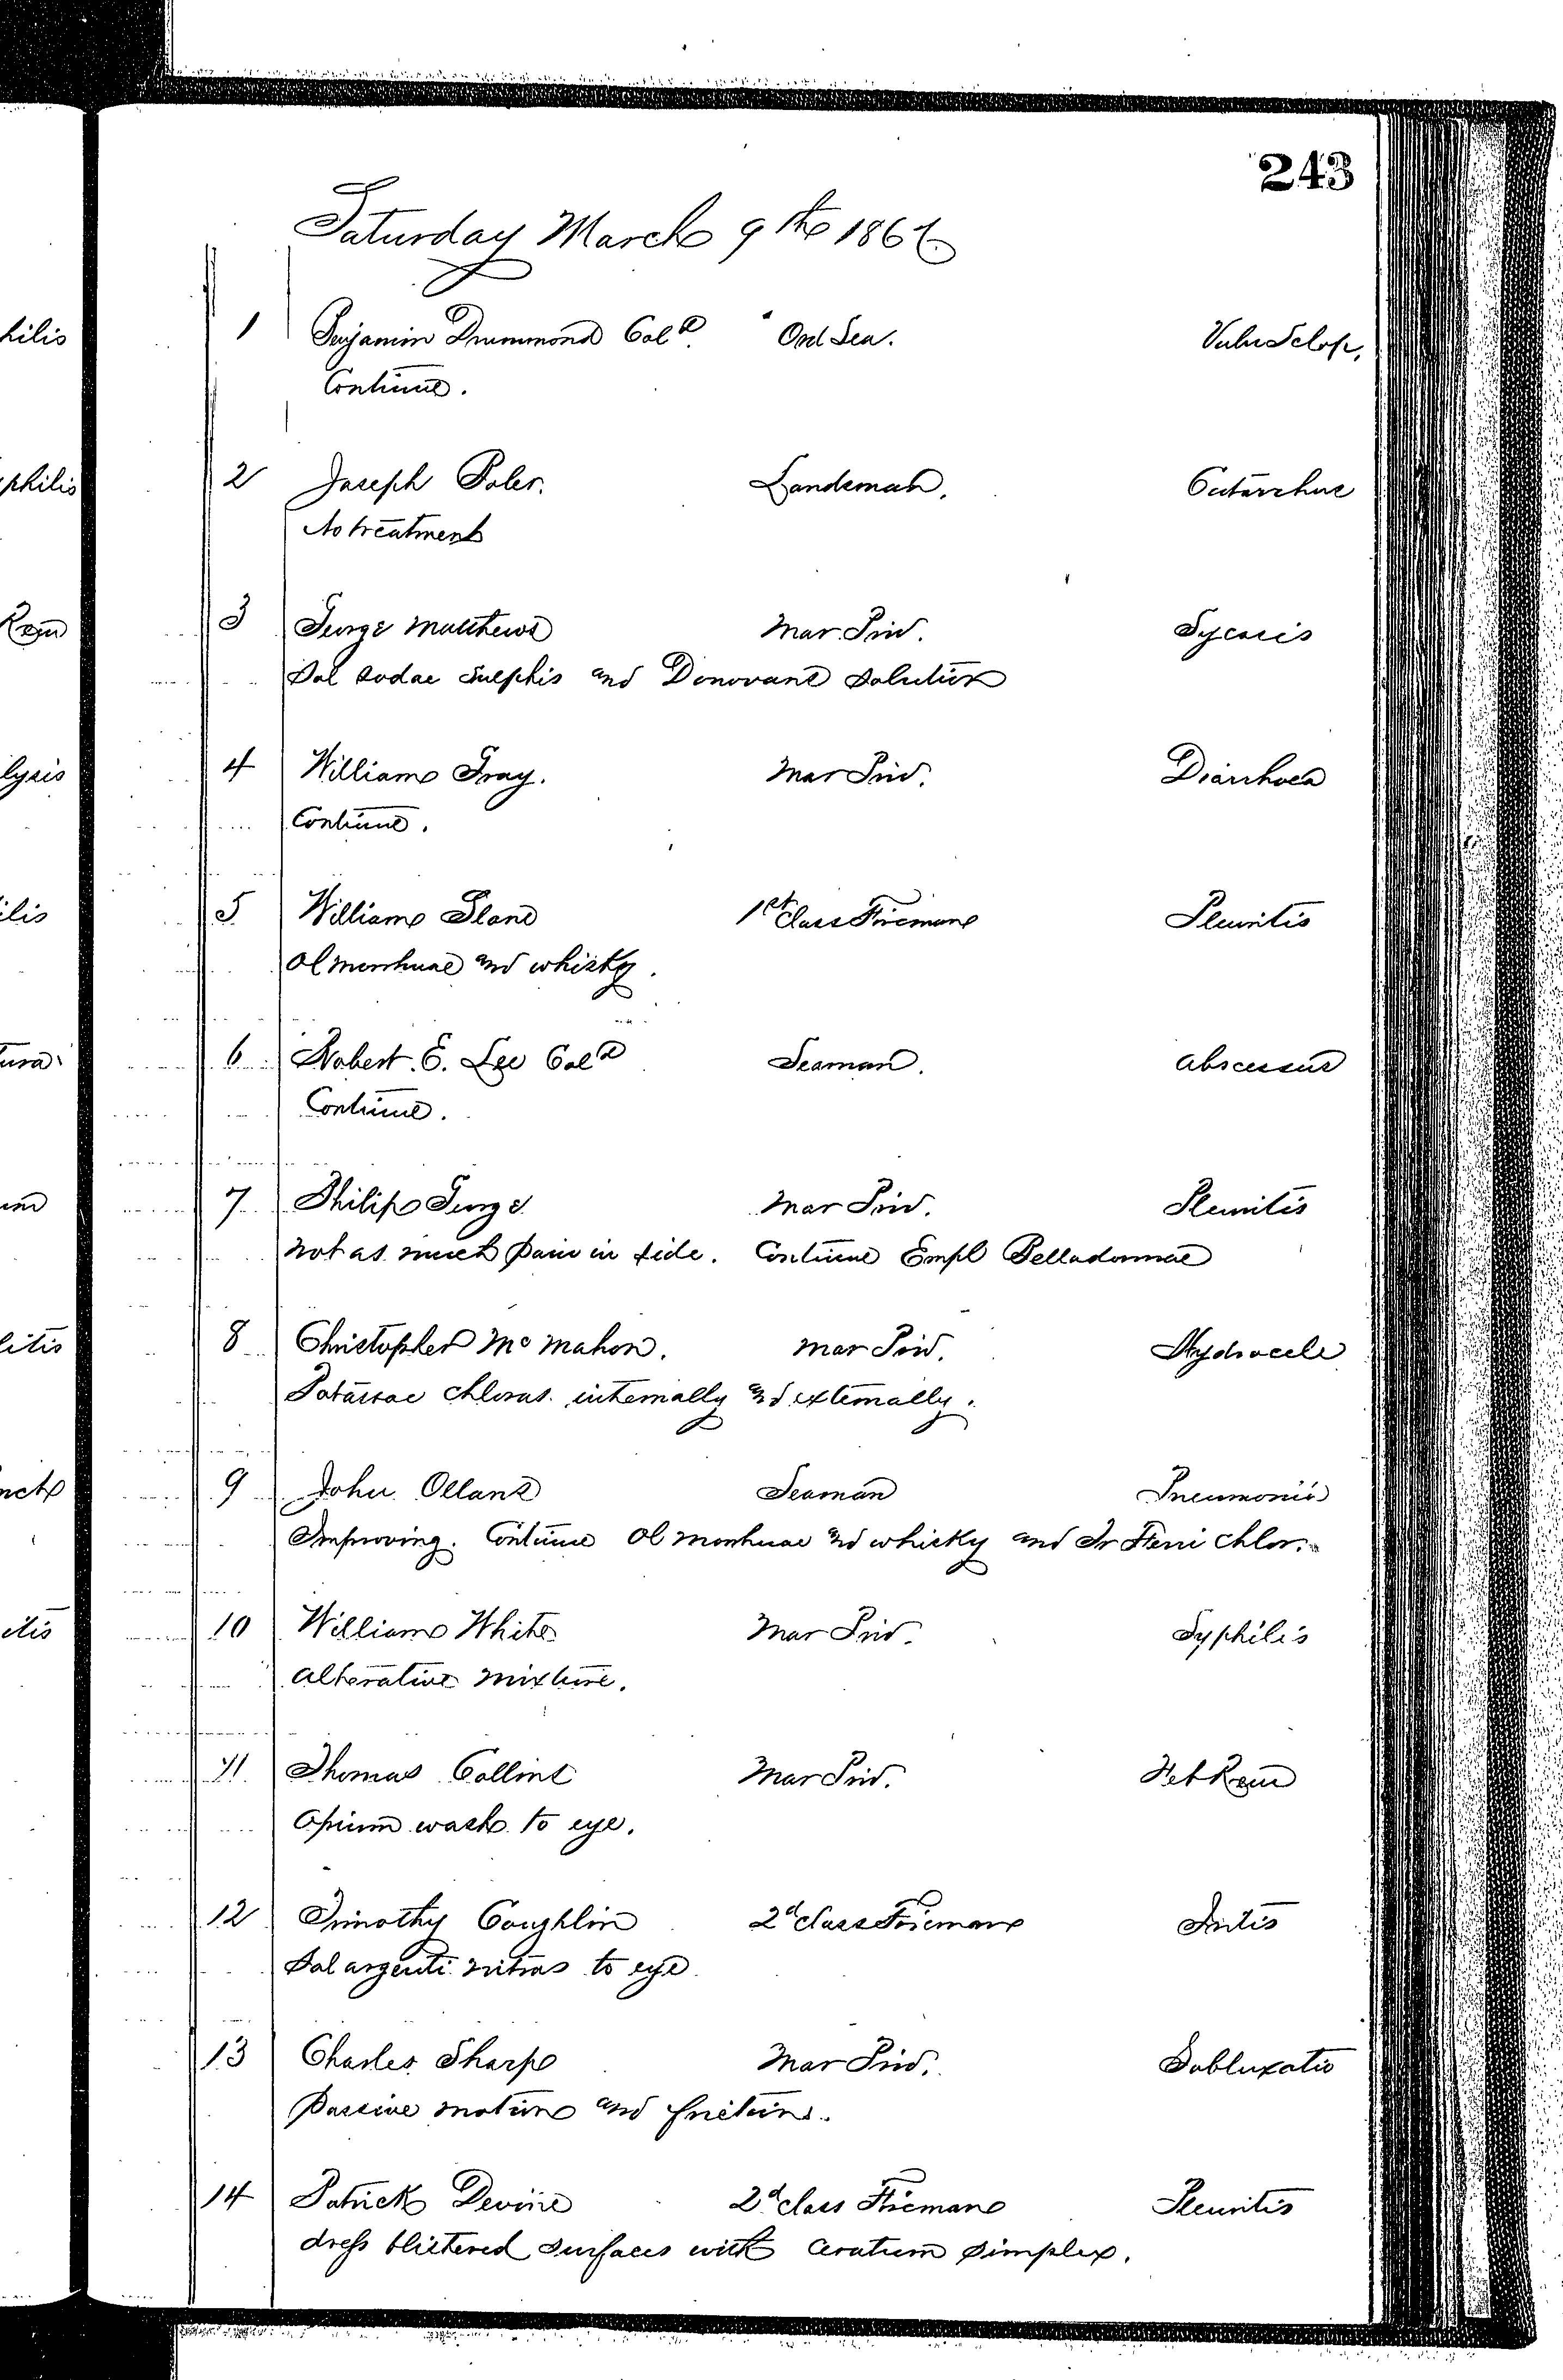 243
Saturday March 9th 1867
hilis
1 Benjamin Drummond Cold. Ord Sea. Vuln Sclop.
Continue.
philis
2 Joseph Poler. Landsman. Catarrhus
No treatment
Rem
3 George Matthews Mar. Priv. Sycosis
Sol sodae sulphis and Donovans solution
lysis
4 William Gray. Mar Priv. Diarrhoea
Continue.
ilis
5 William Sloan 1st Class Fireman Pleuritis
Ol morrhuae and whisky.
6 Robert. E. Lee Cold Seaman. Abscessus
Continue.
7 Philip George Mar Priv. Pleuritis
not as much pain in side. Continue Empl Belladonnae
8 Christopher McMahon. Mar Priv. Hydrocele
Potassae chloras. internally and externally.
9 John Ollans Seaman Pneumonia
Improving. Continue Ol morrhuae and whisky and Tr Ferri Chlor.
itis
10 William White Mar Priv. Syphilis
alterative mixture.
11 Thomas Collins Mar Priv. Feb Rem
Opium wash to eye.
12 Timothy Coughlin 2d Class Fireman Iritis
Sol argenti nitras to eye
13 Charles Sharp Mar Priv. Subluxatio
passive motion and frictions.
14 Patrick Devine 2d class Fireman Pleuritis
dress blistered surfaces with ceratum simplex.